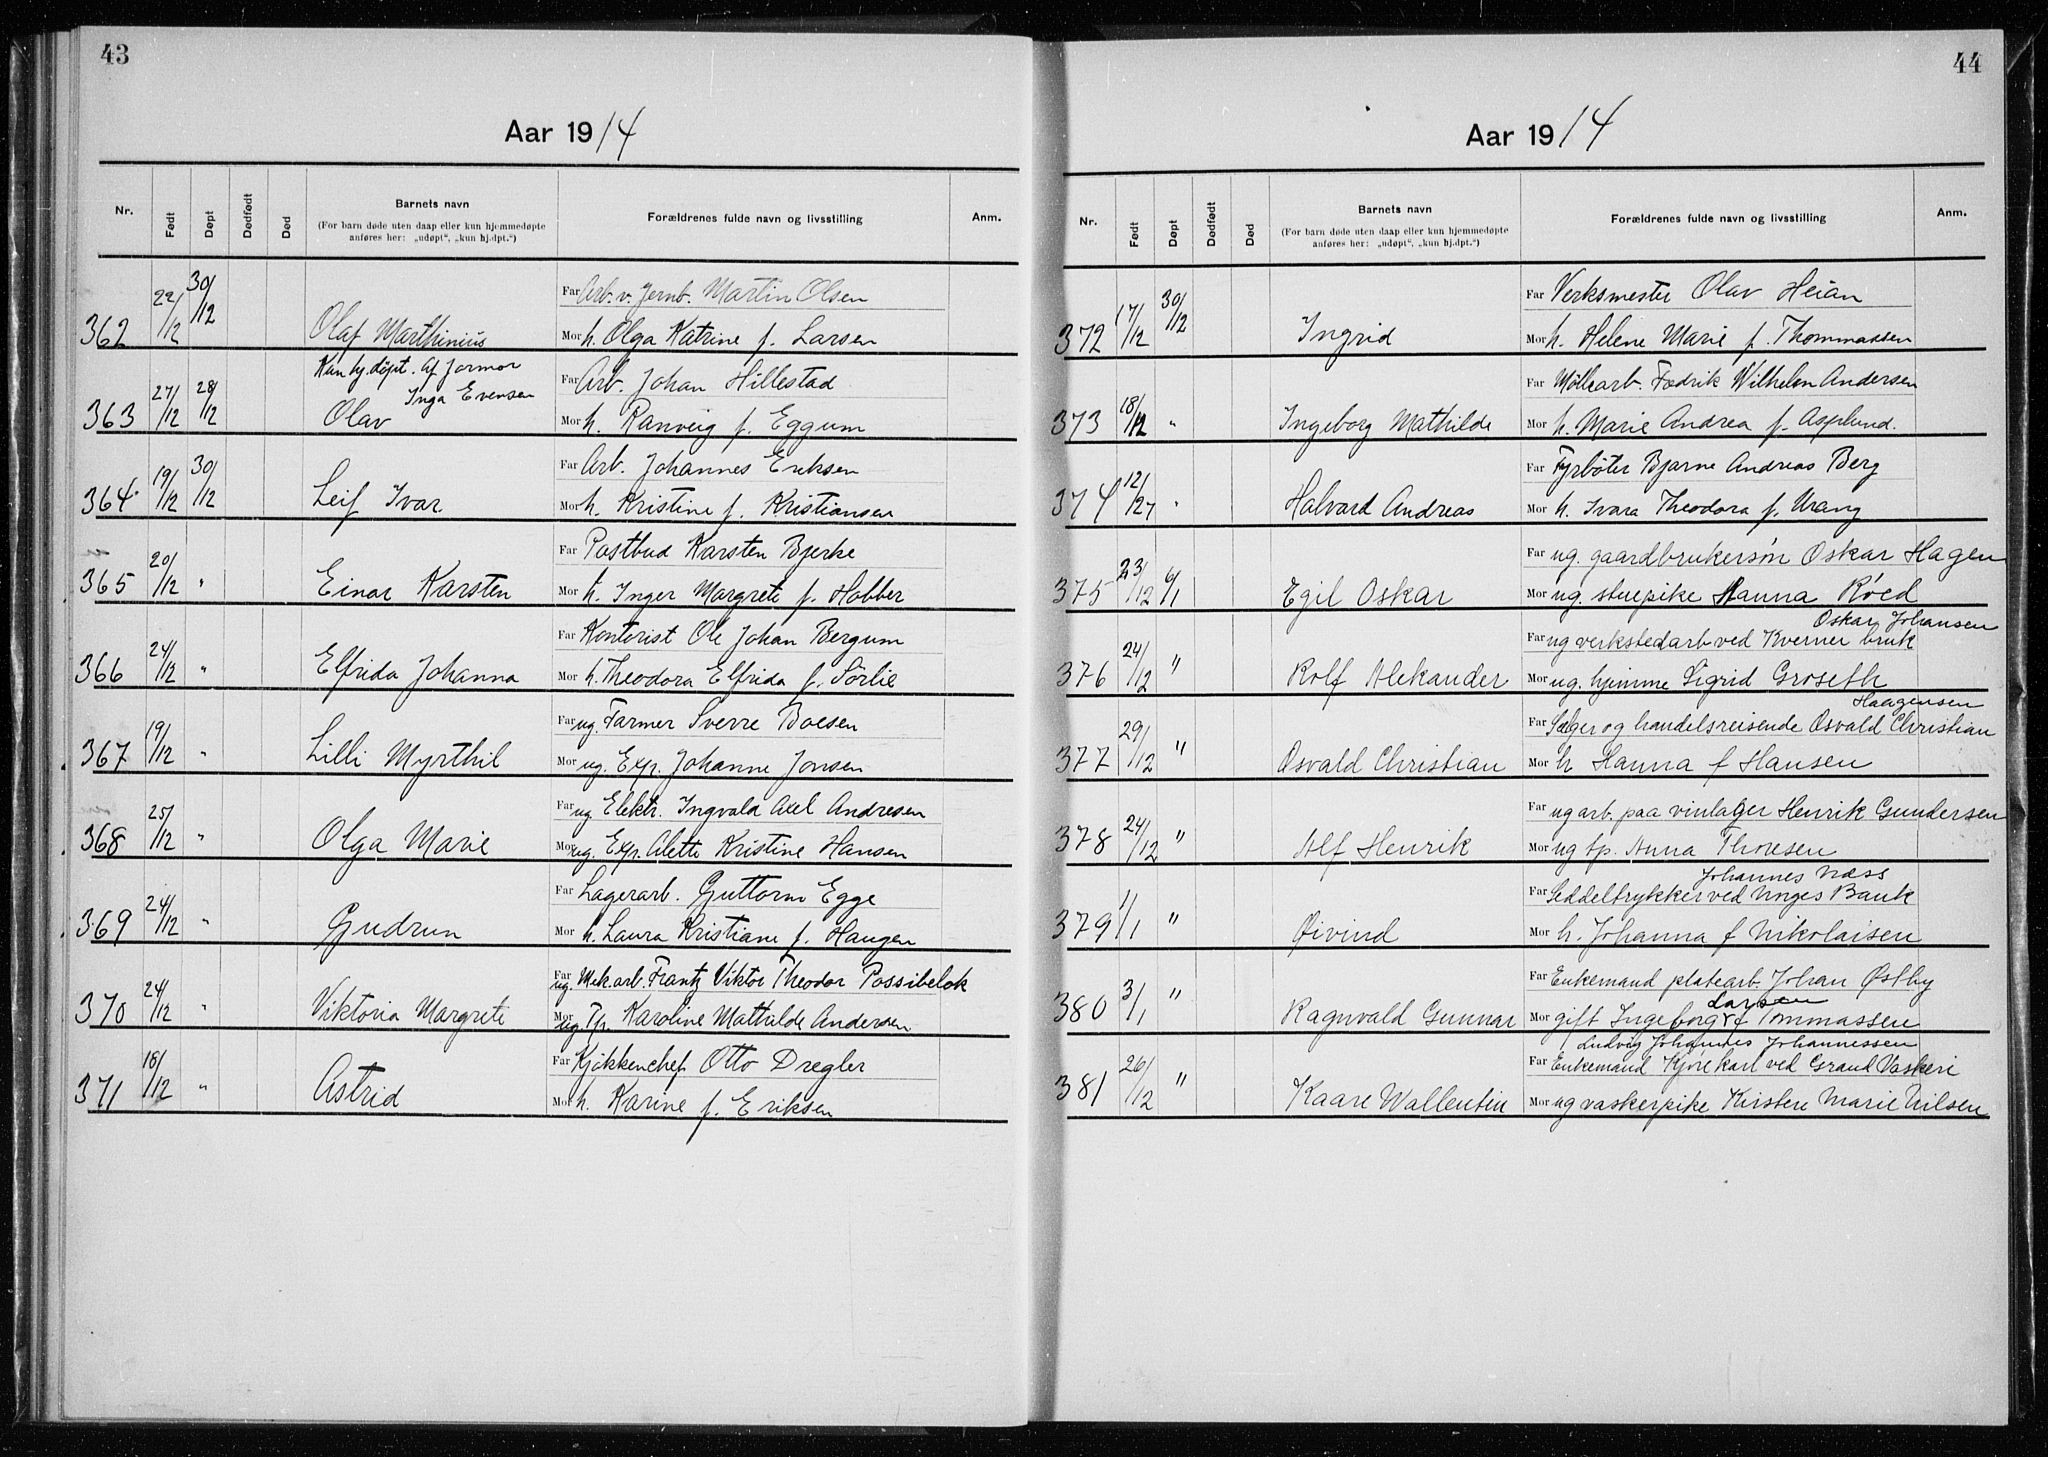 43
Aar 1914
Nr. Født Døpt Dødfødt Død Barnets navn Forældrenes fulde navn og livsstilling Anm.
(For barn døde uten daap eller kun hjemmedøpte
anføres her: „udøpt“, „kun hj.dpt.“)
362 22/12 30/12 Olaf Marthinius
Far Arb. v. Jernb. Martin Olsen
Mor h. Olga Katrine f. Larsen
Kun hj. døpt. af Jormor
Inga Evensen
363 27/12 28/12 Olav
Far Arb. Johan Hillestad
Mor h. Ranveig f. Eggum
364 19/12 30/12 Leif Ivar
Far Arb. Johannes Eriksen
Mor h. Kristine f. Kristiansen
365 20/12 " Einar Karsten
Far Postbud Karsten Bjerke
Mor h. Inger Margrete f. Habber
366 24/12 " Elfrida Johanna
Far Kontorist Ole Johan Bergum
Mor h. Theodora Elfrida f. Sörlie
367 19/12 " Lilli Myrthil
Far ug. Farmer Sverre Boesen
Mor ug. Exp. Johanne Jonsen
368 25/12 " Olga Marie
Far ug Elektr. Ingvald Axel Andresen
Mor ug. Exp. Alette Kristine Hansen
369 24/12 " Gudrun
Far Lagerarb. Guttorm Egge
Mor h. Laura Kristiane f. Haugen
370 24/12 " Viktoria Margrete
Far ug. Mek.arb. Frantz Viktor Theodor Possibelok
Mor ug. Tp. Karoline Mathilde Andersen
371 18/12 " Astrid
Far Kjökkenchef Otto Dregler
Mor h. Karine f. Eriksen
44
Aar 1914
Nr. Født Døpt Dødfødt Død Barnets navn Forældrenes fulde navn og livsstilling Anm.
(For barn døde uten daap eller kun hjemmedøpte
anføres her: „udøpt“, „kun hj.dpt.“)
372 17/12 30/12 Ingrid
Far Verksmester Olav Heian
Mor h. Helene Marie f. Thommassen
373 18/12 " Ingeborg Mathilde
Far Møllearb. Fredrik Wilhelm Andersen
Mor h. Marie Andrea f. Asplund.
374 12/127 " Halvard Andreas
Far Fyrbøter Bjarne Andreas Berg
Mor h. Ivara Theodora f. Urang
375 23/12 6/1 Egil Oskar
Far ug. gaardbrukersøn Oskar Hagen
Mor ug. stuepike Hanna Röed
Oskar Johansen
376 24/12 " Rolf Aleksander
Far ug verkstedarb ved Kverner bruk
Mor ug. hjemme Sigrid Groseth
Haagensen
377 29/12 " Osvald Christian
Far Sælger og handelsreisende Osvald Christian
Mor h Hanna f Hansen
378 24/12 " Alf Henrik
Far ug arb. paa vinlager Henrik Gundersen
Mor ug tp. Anna Thoresen
Johannes Næss
379 1/1 " Øivind
Far Seddeltrykker ved Norges Bank
Mor h. Johanna f Nikolaisen
380 3/1 " Ragnvald Gunnar
Far Enkemand platearb. Johan Østby
Larsen
Mor gift Ingeborg f Tommassen
Ludvig Johannes Johannessen
381 26/12 " Kaare Wallentin
Far Enkemand Kjørekarl ved Grand Vaskeri
Mor ug vaskerpike Kirsten Marie Nilsen